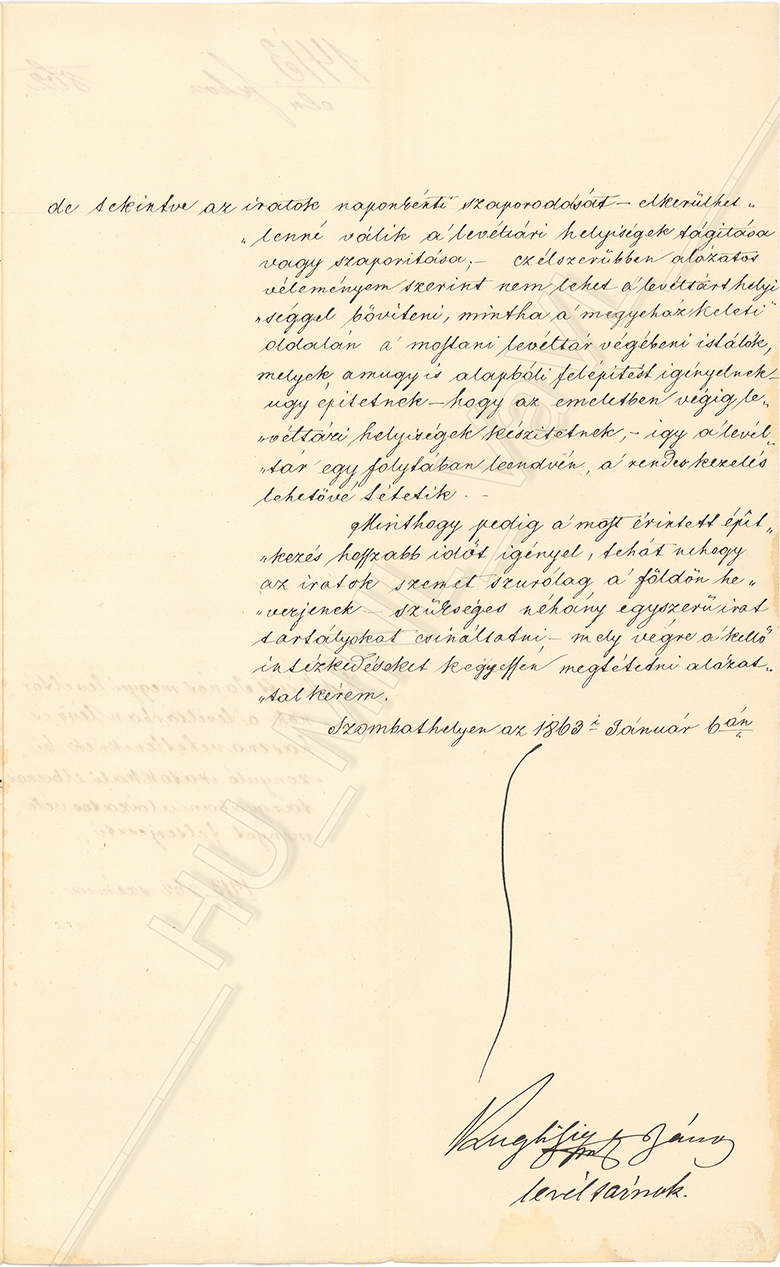 de tekintve az iratok naponbénti szaporodását – elkerülhet„
„lenné válik a' levéltári helyiségek tágitása
vagy szaporitása; – czélszerübben alozatos
véleményem szerint nem lehet a' levéltárt helyi
„séggel böviteni, mintha a' megyeház keleti
oldalán a' mostani levéltár végébeni istálók,
melyek amugy is alapbóli felépitést igényelnek –
ugy épitetnek – hogy az emeletben végig le„
„véltári helyiségek készitetnek, – igy a' levél„
„tár egy folytában leendvén, a' rendes kezelés
lehetövé tétetik. –
Minthogy pedig a' most érintett épit„
„kezés hosszabb időt igényel, tehát nehogy
az iratok szemet szurólag a' földön he„
„verjenek – szükséges néhány egyszerü irat
tartályokat csináltatni – mely végre a' kellő
intézkedéseket kegyessen megtétetni alázat„
„tal kérem.
Szombathelyen az 1863i Január 6án
János
levéltárnok.
HU_MNL_VaVL